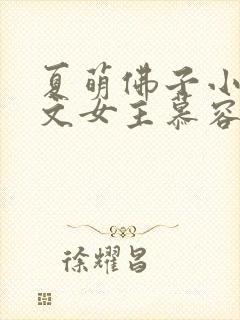 夏萌佛子小
文女王慕容
徐耀昌